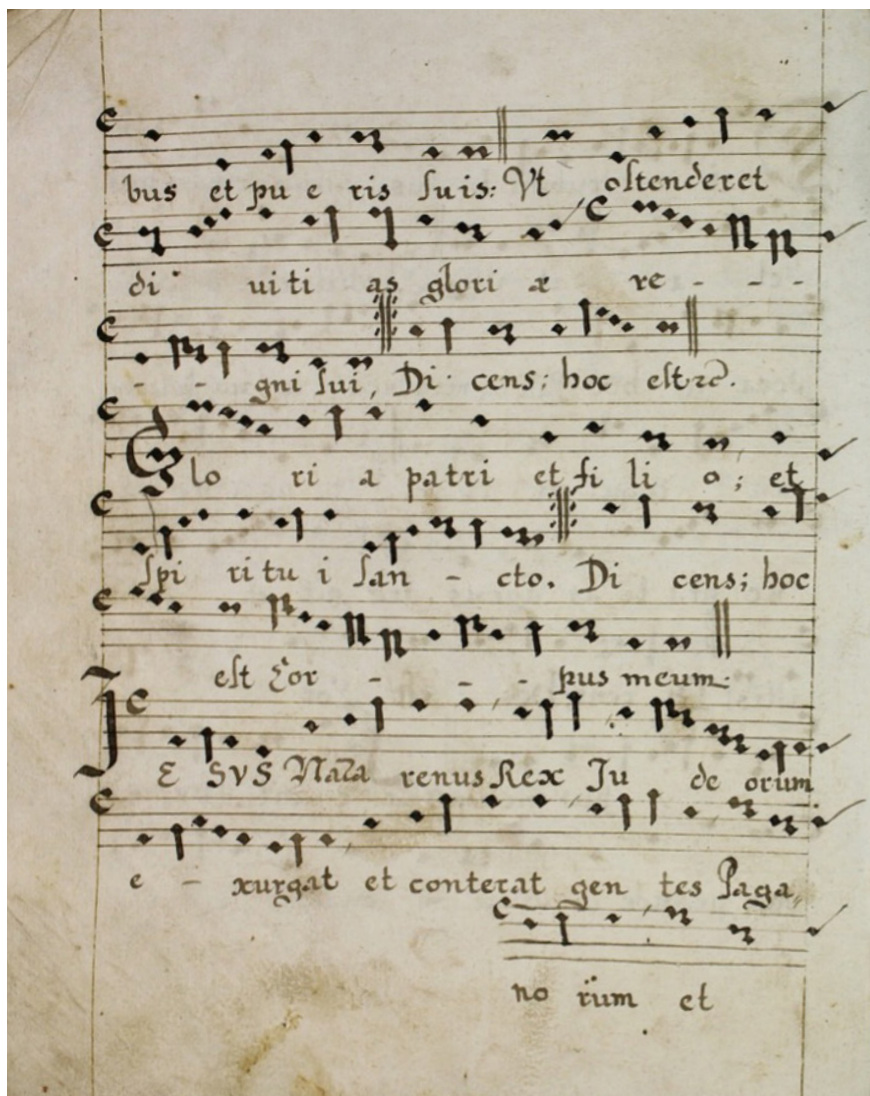 bus et pu e ris ſuis: Vt oſtenderet
di uiti as glori æ re - - -
- - gni ſui, Di cens: hoc eſt ꝛc.
Glo ri a patri et fi li o; et
ſpi ri tu i ſan - cto. Di cens; hoc
eſt Cor - - - pus meum:
IE SVS Naza renus Rex Ju de orum
e - xurgat et conterat gen tes Paga,,
no rum et